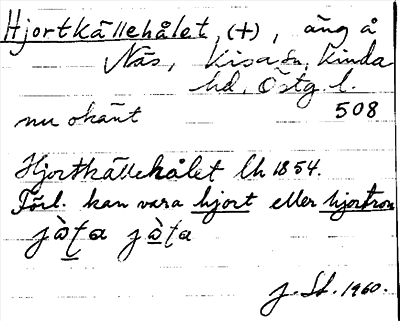 Hjortkällehålet, (+), äng å
Näs, Kisa sn, Kinda
hd, Östg. l.
nu okänt 508
Hjortkällehålet Lh 1854.
Förl. kan vara hjort eller hjortron
j. St. 1960.